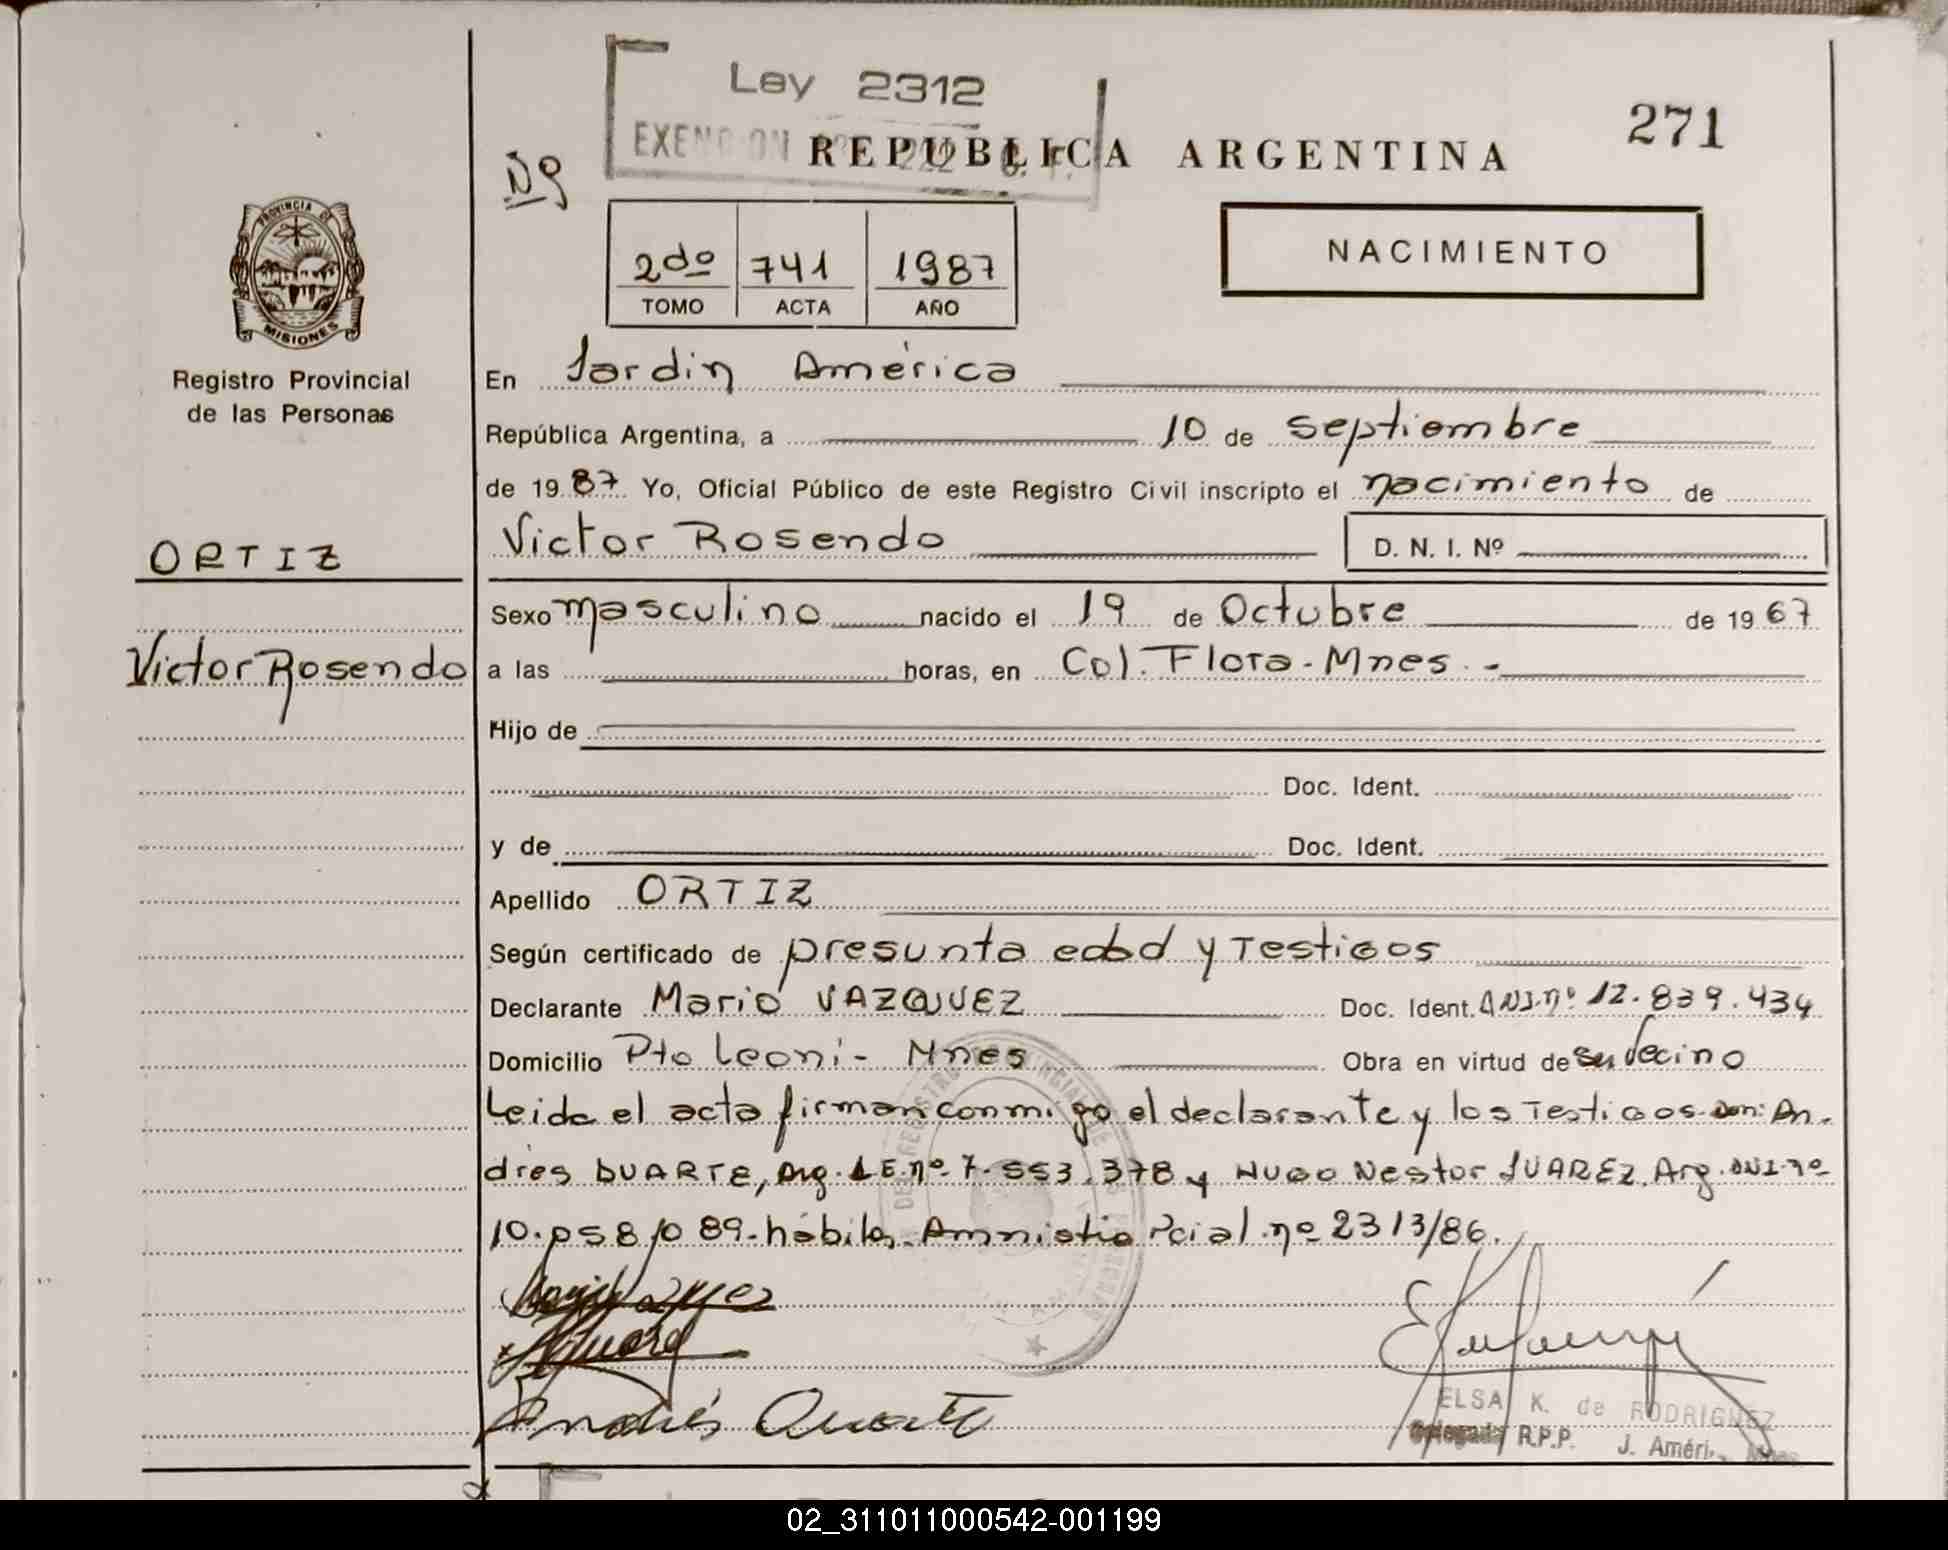 Ley 2312
271
REPUBLICA ARGENTINA
PROVINCIA DE
MISIONES
Registro Provincial
de las Personas
2do 741 1987
TOMO ACTA AÑO
NACIMIENTO
En Jardin América
República Argentina, a 10 de septiembre
de 1987 Yo, Oficial Público de este Registro Civil inscripto el nacimiento de
Victor Rosendo D. N. I. Nº
ORTIZ
Victor Rosendo
Sexo masculino nacido el 19 de Octubre de 1967
a las horas, en Col. Flora - Mnes. -
Hijo de
Doc. Ident.
y de Doc. Ident.
Apellido ORTIZ
Según certificado de presunta edad y Testigos
Declarante Mario VAZQUEZ Doc. Ident. DNI.nº 12.839.434
Domicilio Pto Leoni - Mnes Obra en virtud de ser vecino
Leida el acta firman conmigo el declarante y los Testigos don: An-
drés DUARTE, Arg. LE.nº 7.553.378 y HUGO Nestor JUAREZ, Arg. DNI.nº
10. 089 - hábiles. Amnistia Pcial. nº 2313/86.
Andrés Duarte
ELSA K. de RODRIGUEZ
Delegada R.P.P. J. Améri
02_311011000542-001199